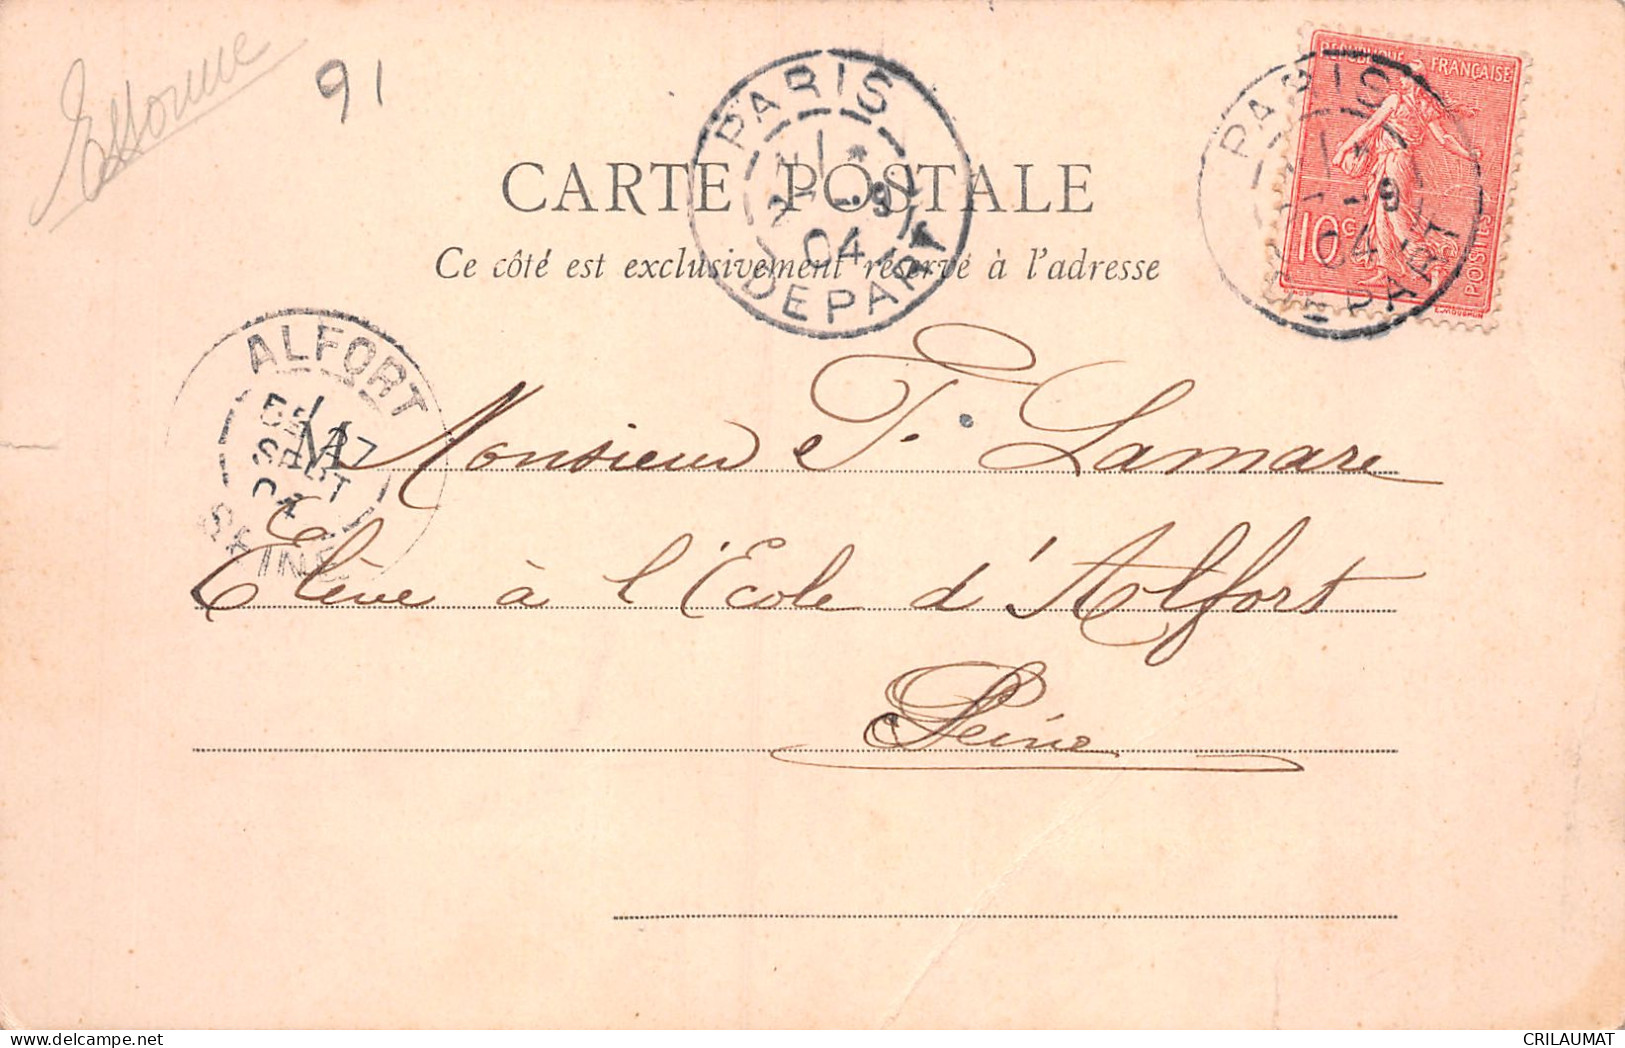 Essonne
91
PARIS
DEPART
-9
04
RÉPUBLIQUE FRANÇAISE
10c
POSTES
PARIS
-9
04
DEPART
CARTE POSTALE
Ce côté est exclusivement réservé à l'adresse
ALFORT
SEPT
04
SEINE
M
Monsieur F. Lamare
Elève à l'Ecole d'Alfort
Seine
CRILAUMAT